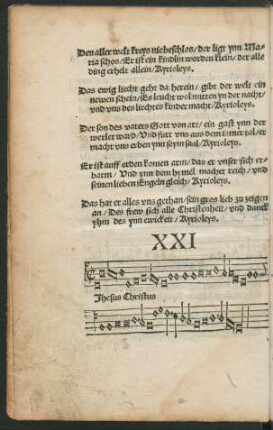 Den aller welt kreys nie beschlos / der ligt ynn Ma-
ria schos / Er ist ein kindlin worden klein / der alle
ding erhelt allein / Kyrioleys.
Das ewig liecht geht da herein / gibt der welt ein
newen schein / Es leucht wol mitten ynn der nacht /
und uns des liechtes kinder macht / Kyrioleys.
Der son des vaters Gott von art / ein gast ynn der
werlet ward / Und furt uns aus dem iamer tal / er
macht uns erben ynn seym saal / Kyrioleys.
Er ist auff erden komen arm / das er unser sich er-
barm / Und ynn dem hymel macher reich / und
seinen lieben Engeln gleich / Kyrioleys.
Das hat er alles uns gethan / sein gros lieb zu zeigen
an / Des frew sich alle Christenheit / und danck
yhm des ynn ewickeit / Kyrioleys.
XXI
Jhesus Christus